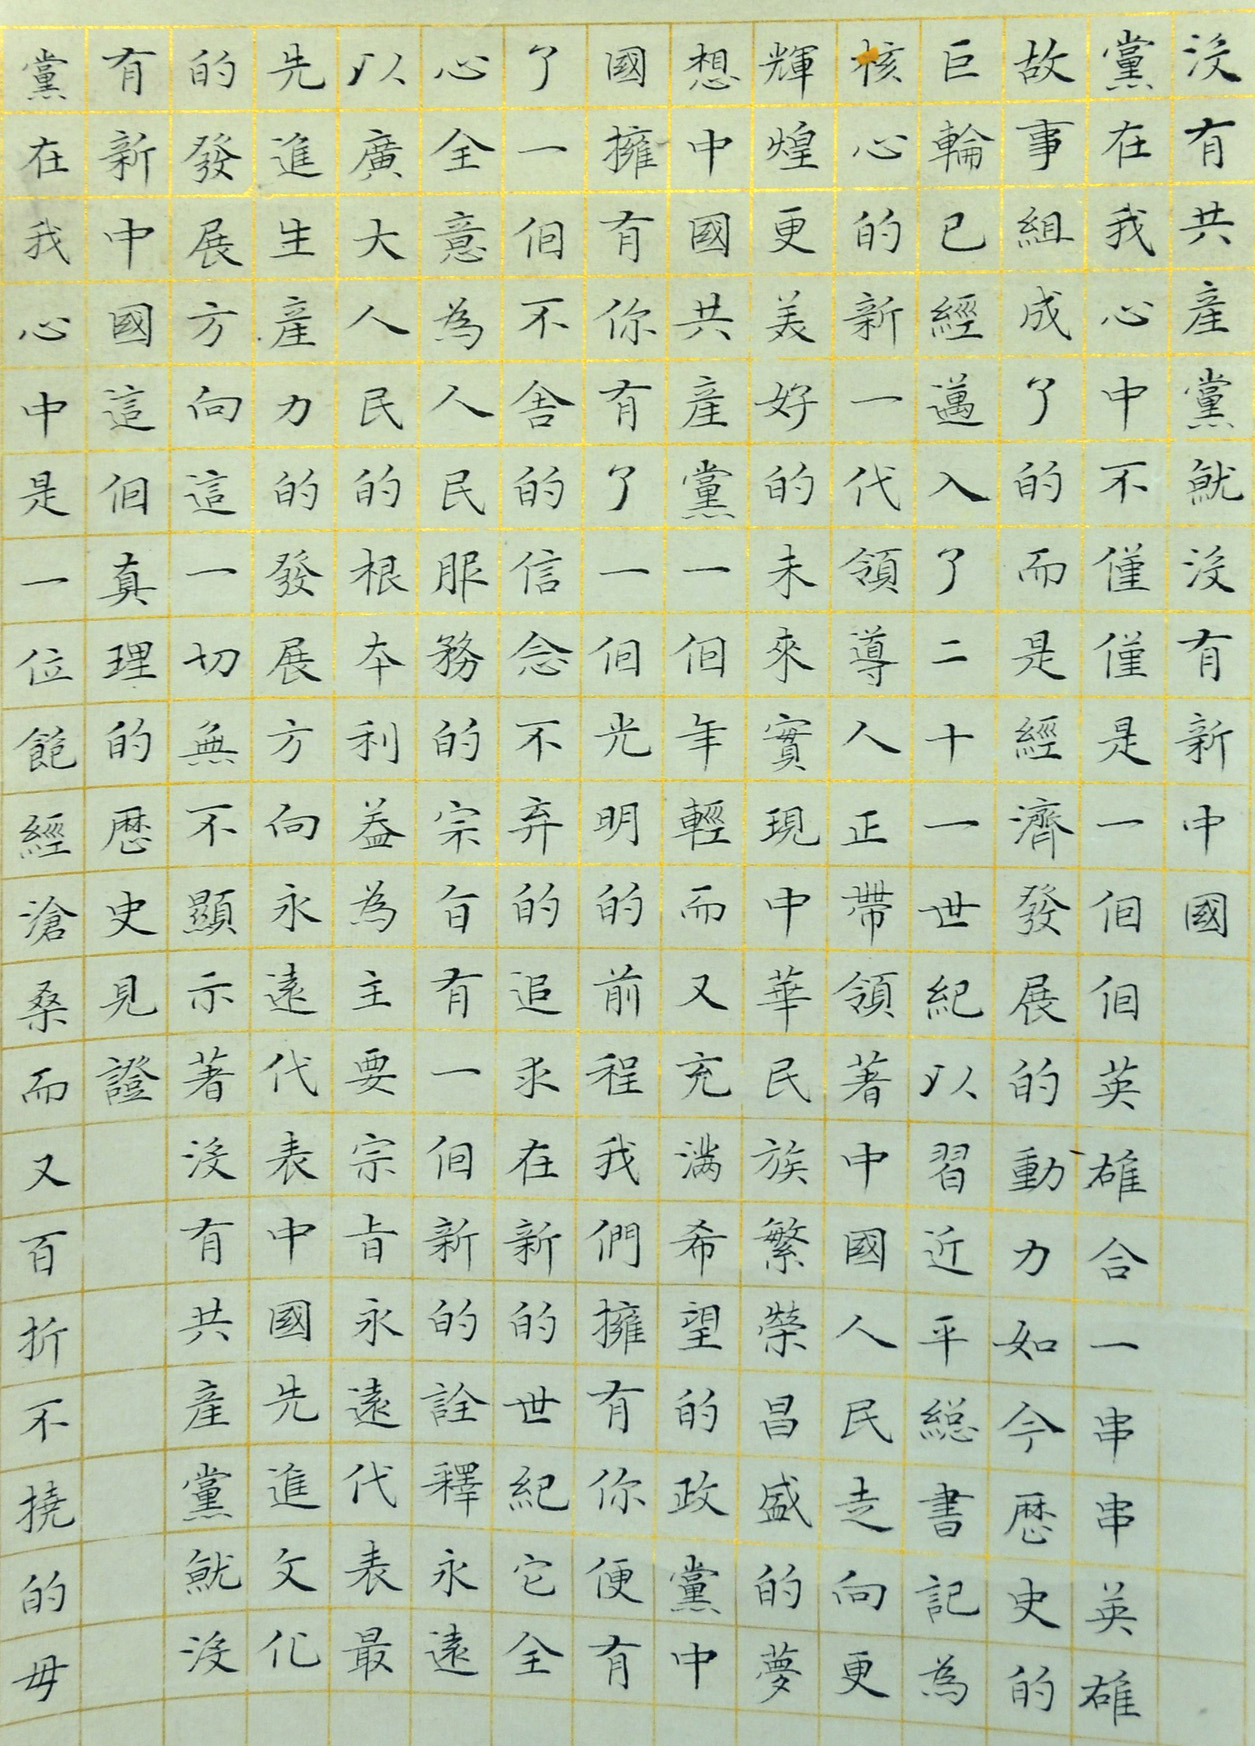 没有共產黨就没有新中國
黨在我心中不僅僅是一個個英雄合一串串英雄
故事組成了的而是經濟發展的動力如今歷史的
巨輪已經邁入了二十一世紀以習近平總書記為
核心的新一代領導人正帶領著中國人民走向更
輝煌更美好的未來實現中華民族繁榮昌盛的夢
想中國共產黨一個年輕而又充滿希望的政黨中
國擁有你有了一個光明的前程我們擁有你便有
了一個不舍的信念不弃的追求在新的世紀它全
心全意為人民服務的宗旨有一個新的詮釋永遠
以廣大人民的根本利益為主要宗旨永遠代表最
先進生產力的發展方向永遠代表中國先進文化
的發展方向這一切無不顯示著没有共產黨就没
有新中國這個真理的歷史見證
黨在我心中是一位飽經滄桑而又百折不撓的毋